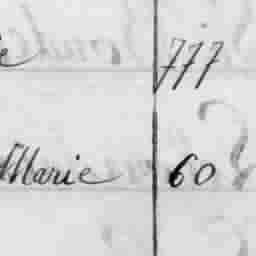 e 777
Marie 60